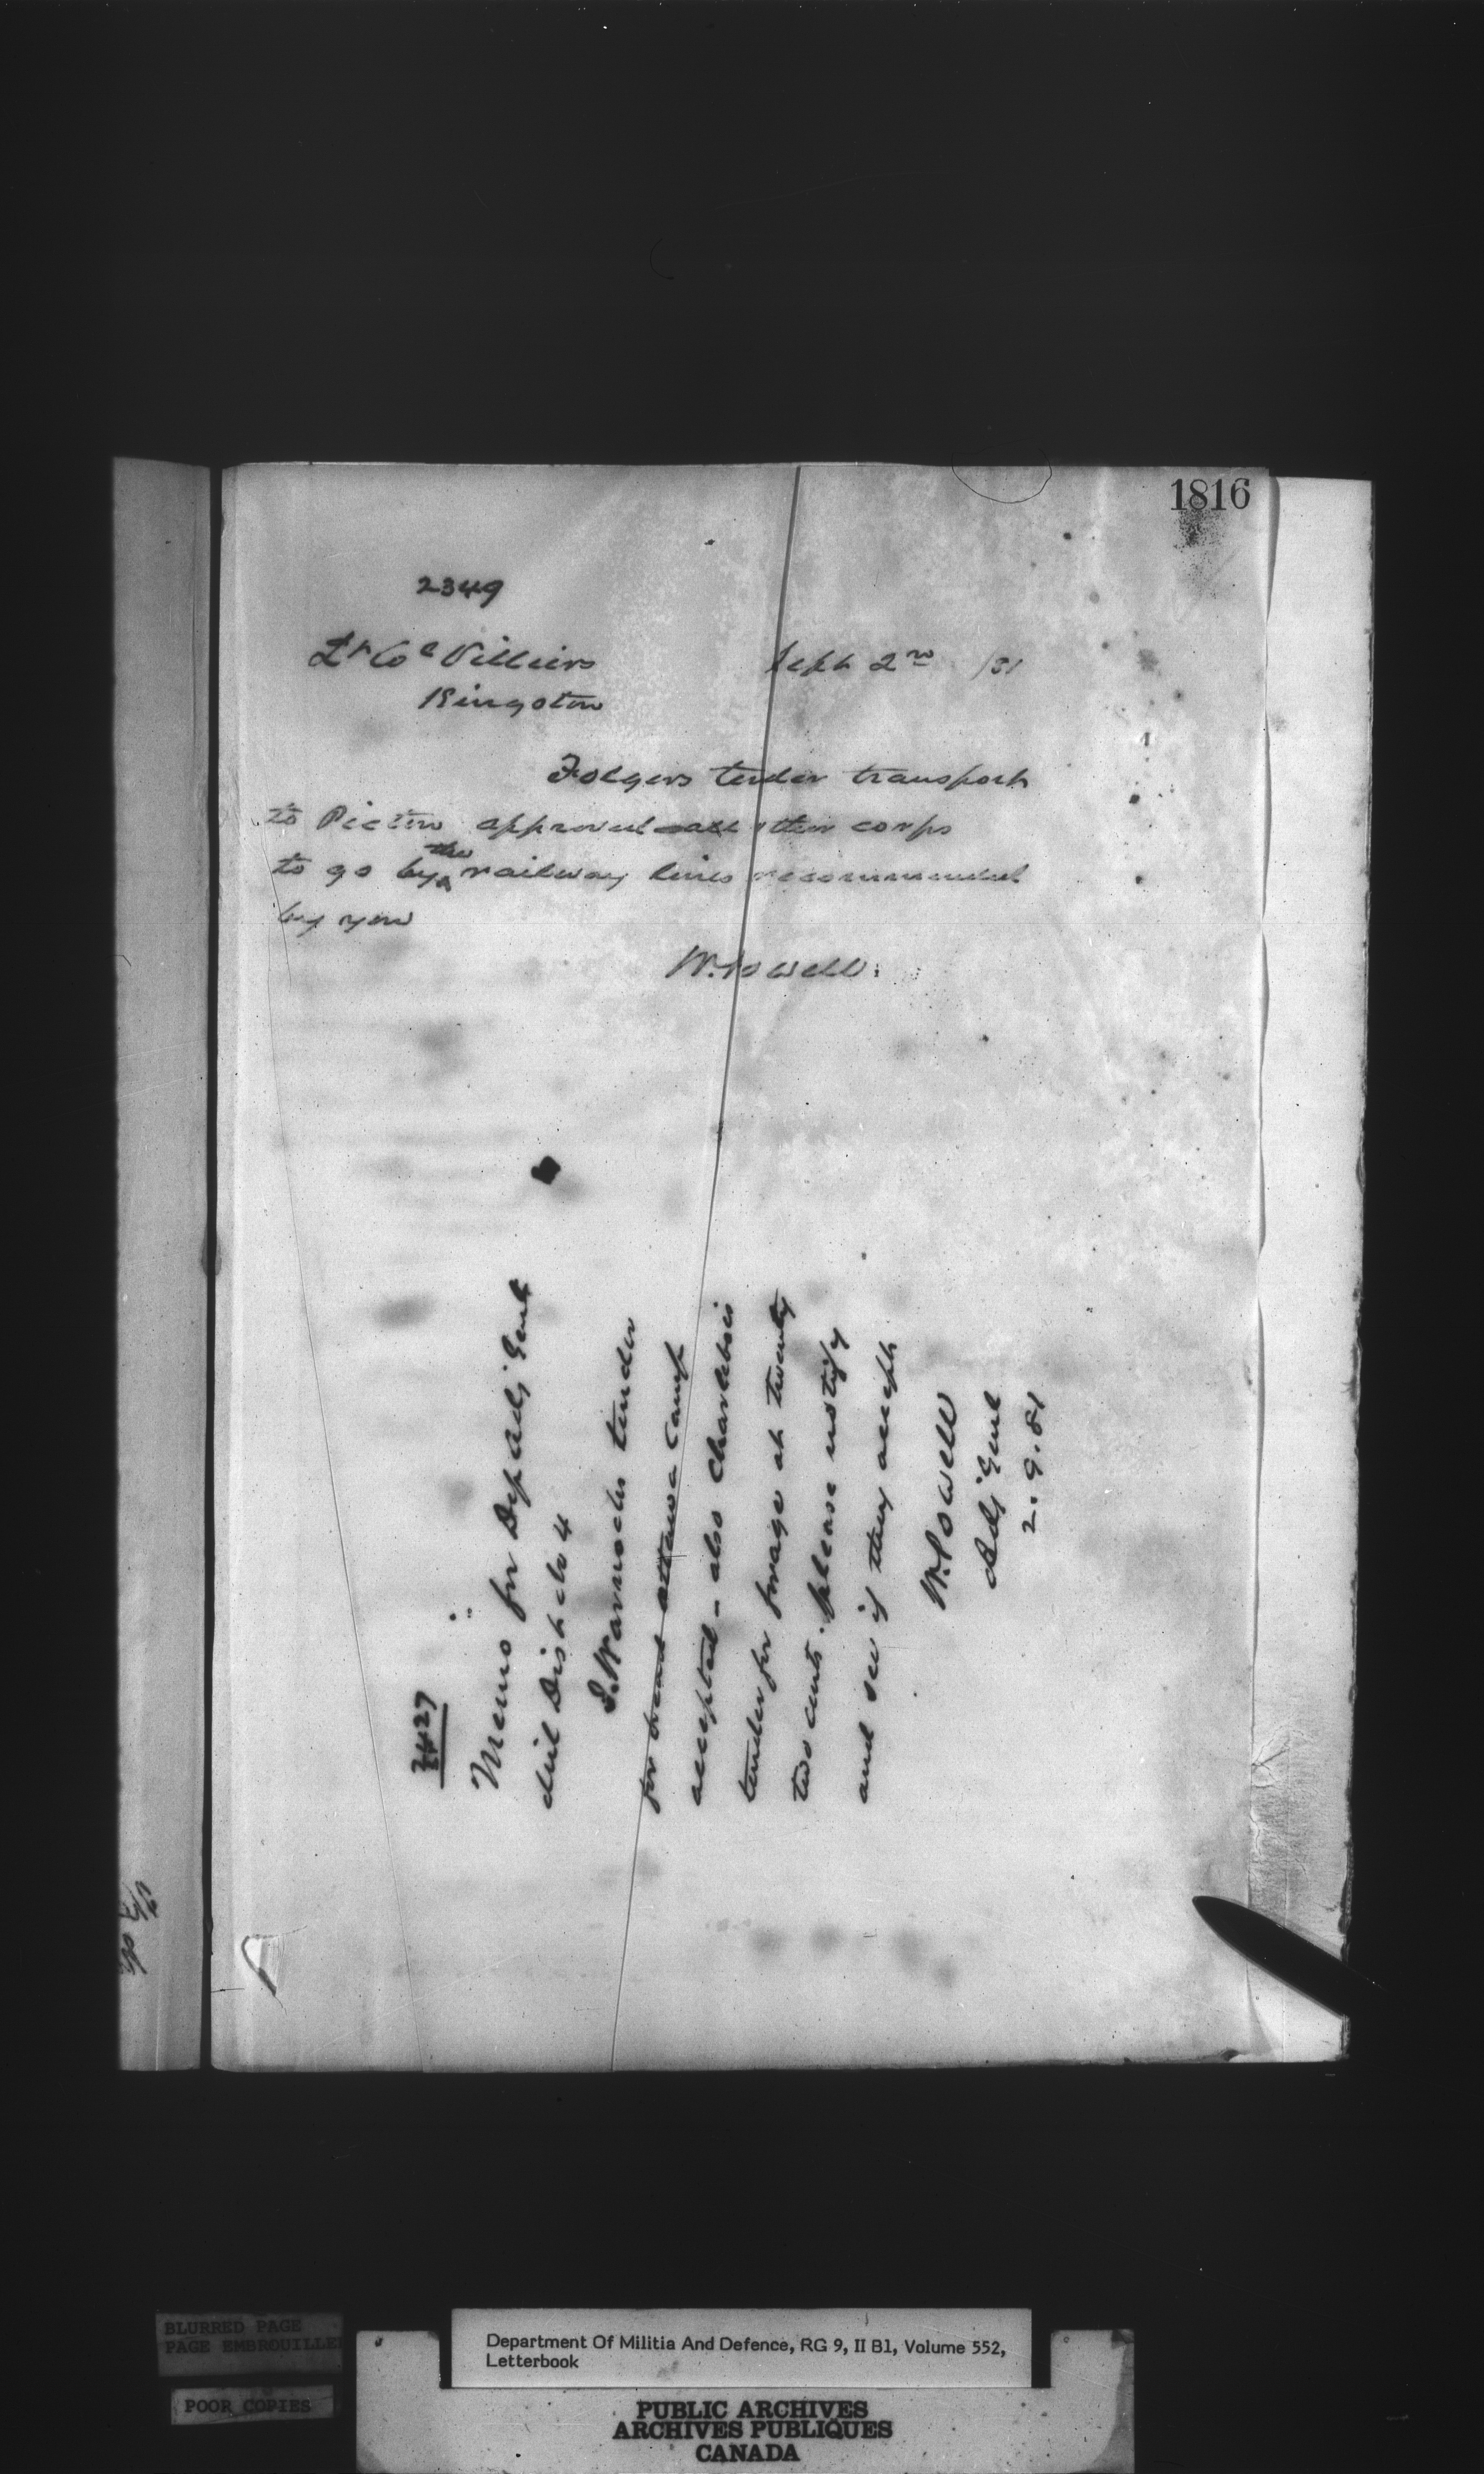 1816
2349
Lt Col Villiers Sept 2nd /81
Kingston
Folgers tender transport
to Picton approved all other corps
to go by the railway lines recommended
by you
W. Powell.
2427
Memo for Dep Adj Genl
Mil Dist No 4
J. Warnocks tender
for bread Ottawa Camp
accepted - also Charlebois
tender for forage at twenty
two cents. please notify
and see if they accept
W. Powell
Adj Genl
2.9.81
BLURRED PAGE
PAGE EMBROUILLEE
POOR COPIES
Department Of Militia And Defence, RG 9, II B1, Volume 552,
Letterbook
PUBLIC ARCHIVES
ARCHIVES PUBLIQUES
CANADA